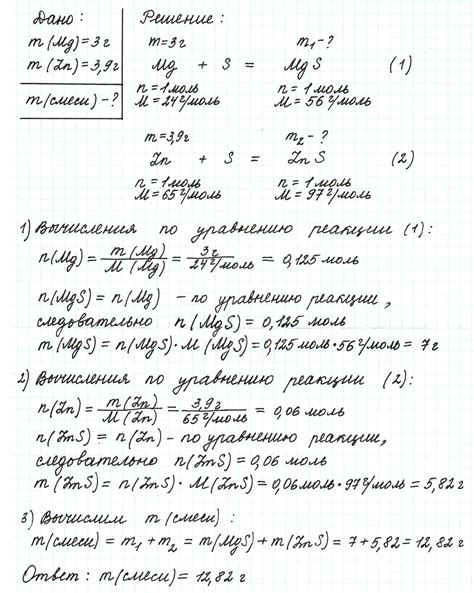 Дано:
m(Mg)=3г
m(Zn)=3,9г
m(смеси)-?
Решение:
m=3г m₁-?
Mg + S = MgS (1)
n=1моль n=1моль
M=24г/моль M=56г/моль
m=3,9г m₂-?
Zn + S = ZnS (2)
n=1моль n=1моль
M=65г/моль M=97г/моль
1) Вычисления по уравнению реакции (1):
n(Mg)= m(Mg)/M(Mg) = 3г/24г/моль = 0,125 моль
n(MgS)=n(Mg) - по уравнению реакции,
следовательно n(MgS)=0,125 моль
m(MgS)=n(MgS)·M(MgS)=0,125моль·56г/моль= 7г
2) Вычисления по уравнению реакции (2):
n(Zn)= m(Zn)/M(Zn) = 3,9г/65г/моль = 0,06 моль
n(ZnS)=n(Zn) - по уравнению реакции,
следовательно n(ZnS)=0,06 моль
m(ZnS)=n(ZnS)·M(ZnS)=0,06моль·97г/моль=5,82г
3) Вычислим m(смеси):
m(смеси)=m₁+m₂=m(MgS)+m(ZnS)=7+5,82=12,82г
Ответ: m(смеси)=12,82г